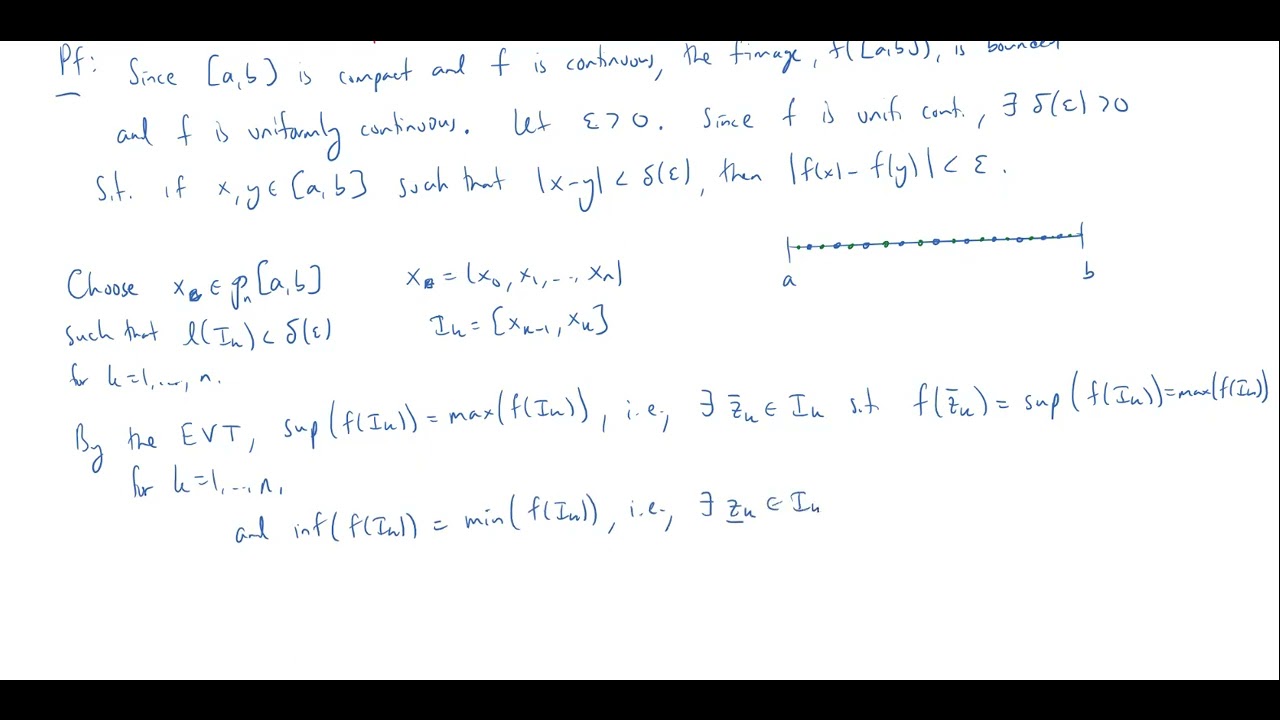 Pf: Since [a,b] is compact and f is continuous, the image, f([a,b]), is bounded
and f is uniformly continuous. Let ε > 0. Since f is unif. cont., ∃ δ(ε) > 0
s.t. if x, y ∈ [a,b] such that |x-y| < δ(ε), then |f(x) - f(y)| < ε.
a b
Choose x ∈ 𝒫ₙ[a,b] x = (x₀, x₁, ..., xₙ)
such that l(Iₖ) < δ(ε) Iₖ = [xₖ₋₁, xₖ]
for k=1,...,n.
By the EVT, sup(f(Iₖ)) = max(f(Iₖ)), i.e., ∃ z̄ₖ ∈ Iₖ s.t. f(z̄ₖ) = sup(f(Iₖ)) = max(f(Iₖ))
for k=1,...,n,
and inf(f(Iₖ)) = min(f(Iₖ)), i.e., ∃ z̲ₖ ∈ Iₖ